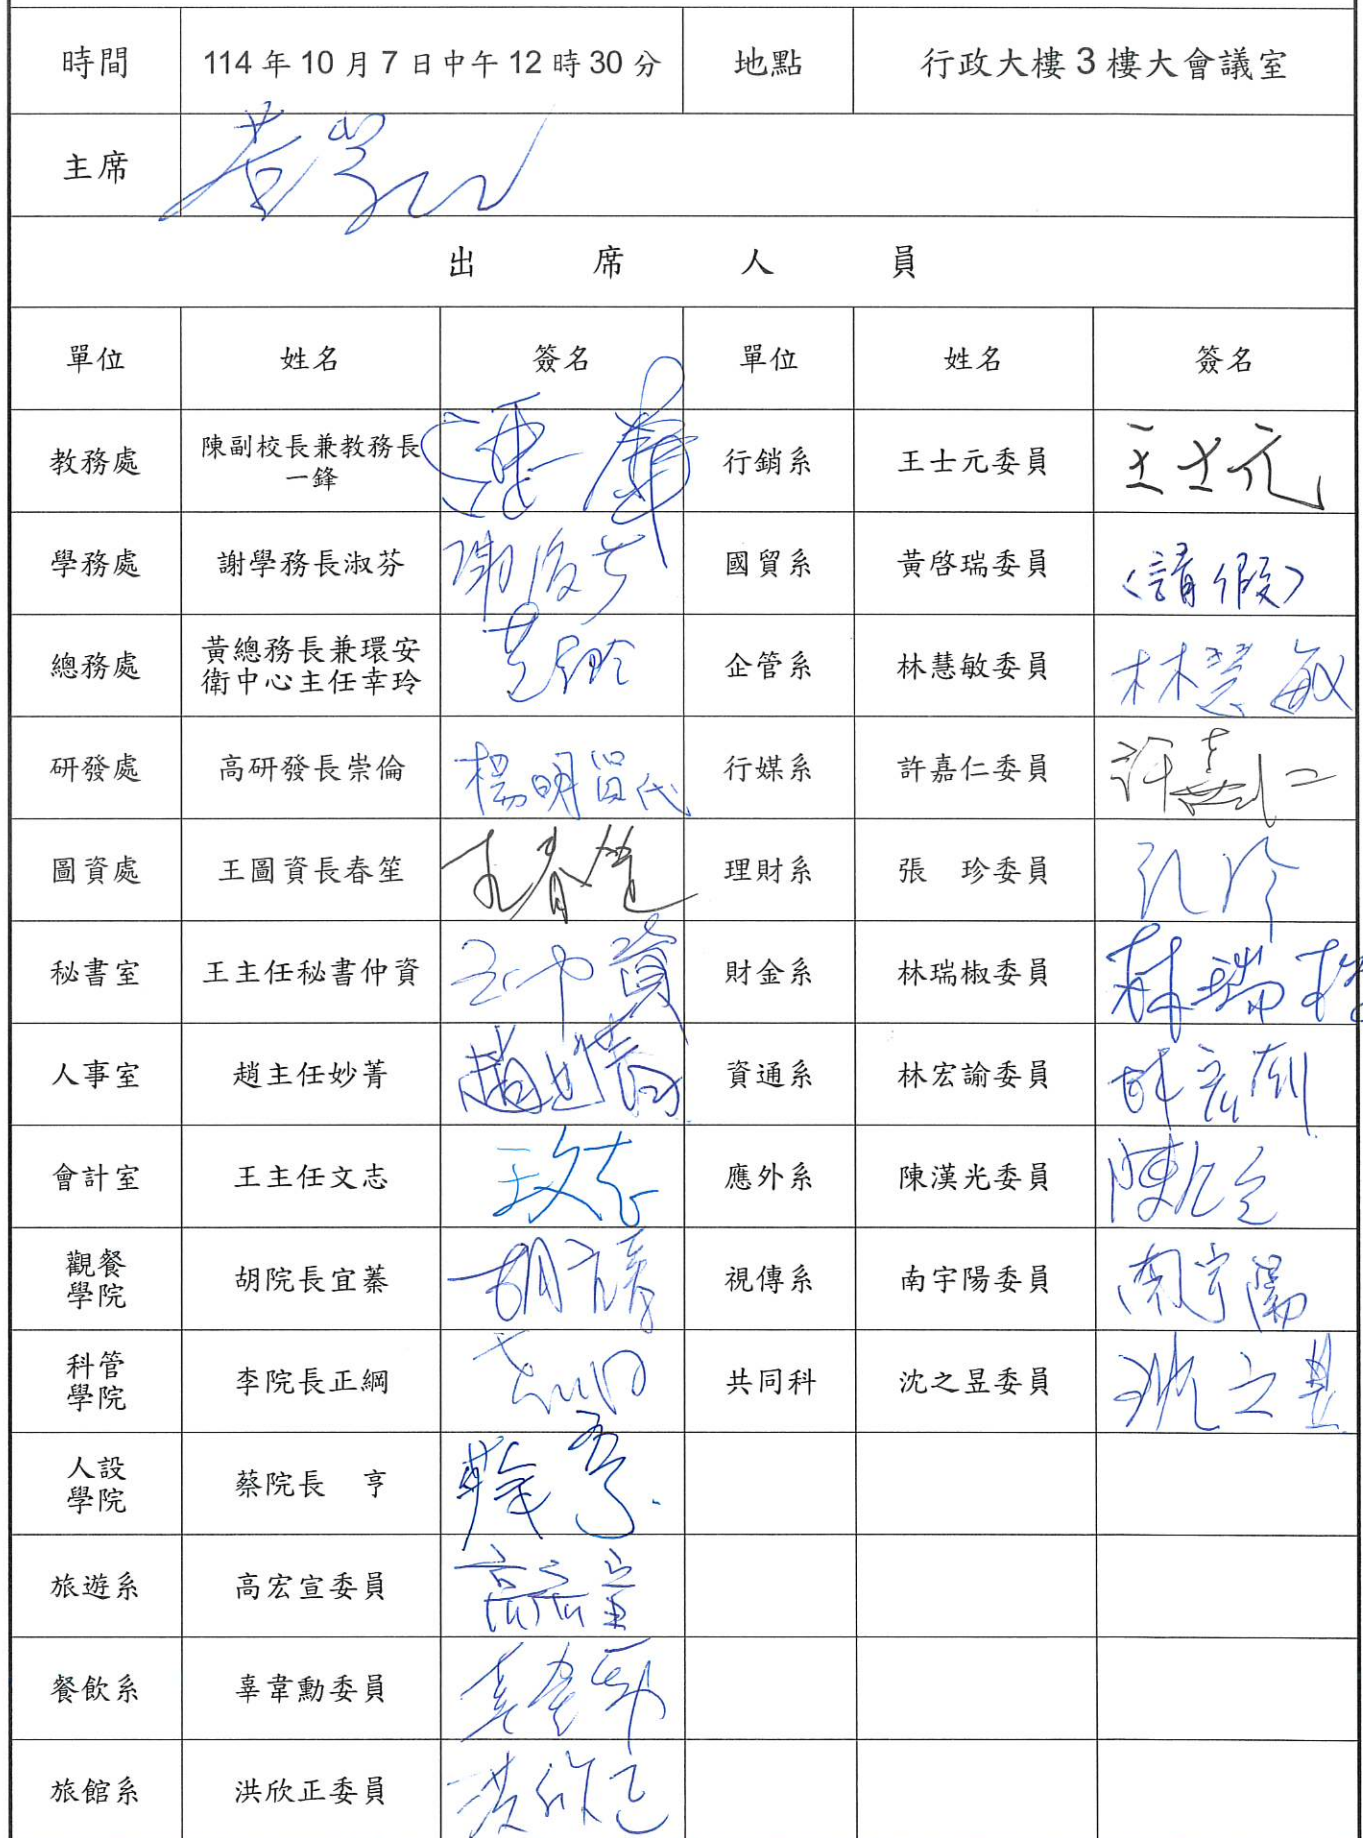 時間 114 年 10 月 7 日中午 12 時 30 分 地點 行政大樓 3 樓大會議室
主席
出 席 人 員
單位 姓名 簽名 單位 姓名 簽名
教務處 陳副校長兼教務長一鋒 行銷系 王士元委員 王士元
學務處 謝學務長淑芬 國貿系 黃啓瑞委員 (請假)
總務處 黃總務長兼環安衛中心主任幸玲 企管系 林慧敏委員 林慧敏
研發處 高研發長崇倫 楊明留代 行媒系 許嘉仁委員 許嘉仁
圖資處 王圖資長春笙 王春笙 理財系 張 珍委員 張珍
秘書室 王主任秘書仲資 王中資 財金系 林瑞椒委員 林瑞椒
人事室 趙主任妙菁 資通系 林宏諭委員
會計室 王主任文志 王文志 應外系 陳漢光委員
觀餐學院 胡院長宜蓁 視傳系 南宇陽委員 南宇陽
科管學院 李院長正綱 共同科 沈之昱委員 沈之昱
人設學院 蔡院長 亨
旅遊系 高宏宣委員 高宏宣
餐飲系 辜韋勳委員
旅館系 洪欣正委員 洪欣正